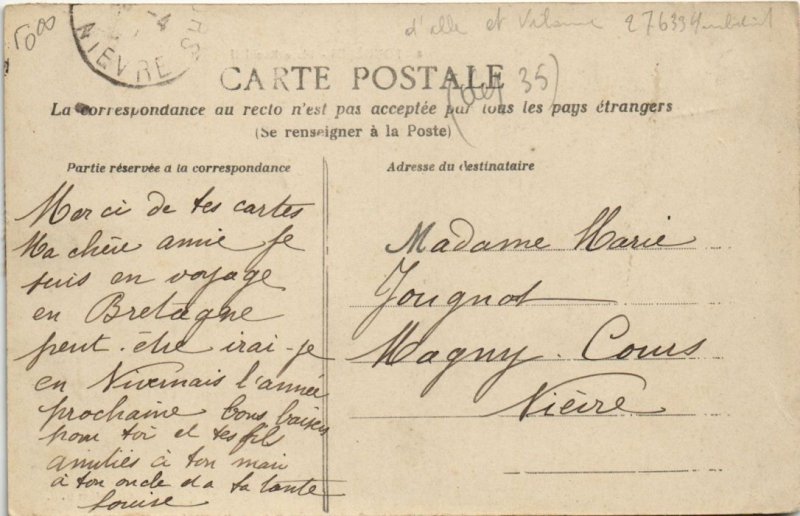 5000
NIÈVRE
d'Ille et Vilaine 276339
CARTE POSTALE
(dep 35)
La correspondance au recto n'est pas acceptée par tous les pays étrangers
(Se renseigner à la Poste)
Partie réservée a la correspondance
Merci de tes cartes
Ma chère amie je
suis en voyage
en Bretagne
peut-être irai-je
en Nivernais l'année
prochaine bons baisers
pour toi et tes fils
amitiés à ton mari
à ton oncle et a ta tante
Louise
Adresse du destinataire
Madame Marie
Jougnot
Magny-Cours
Nièvre